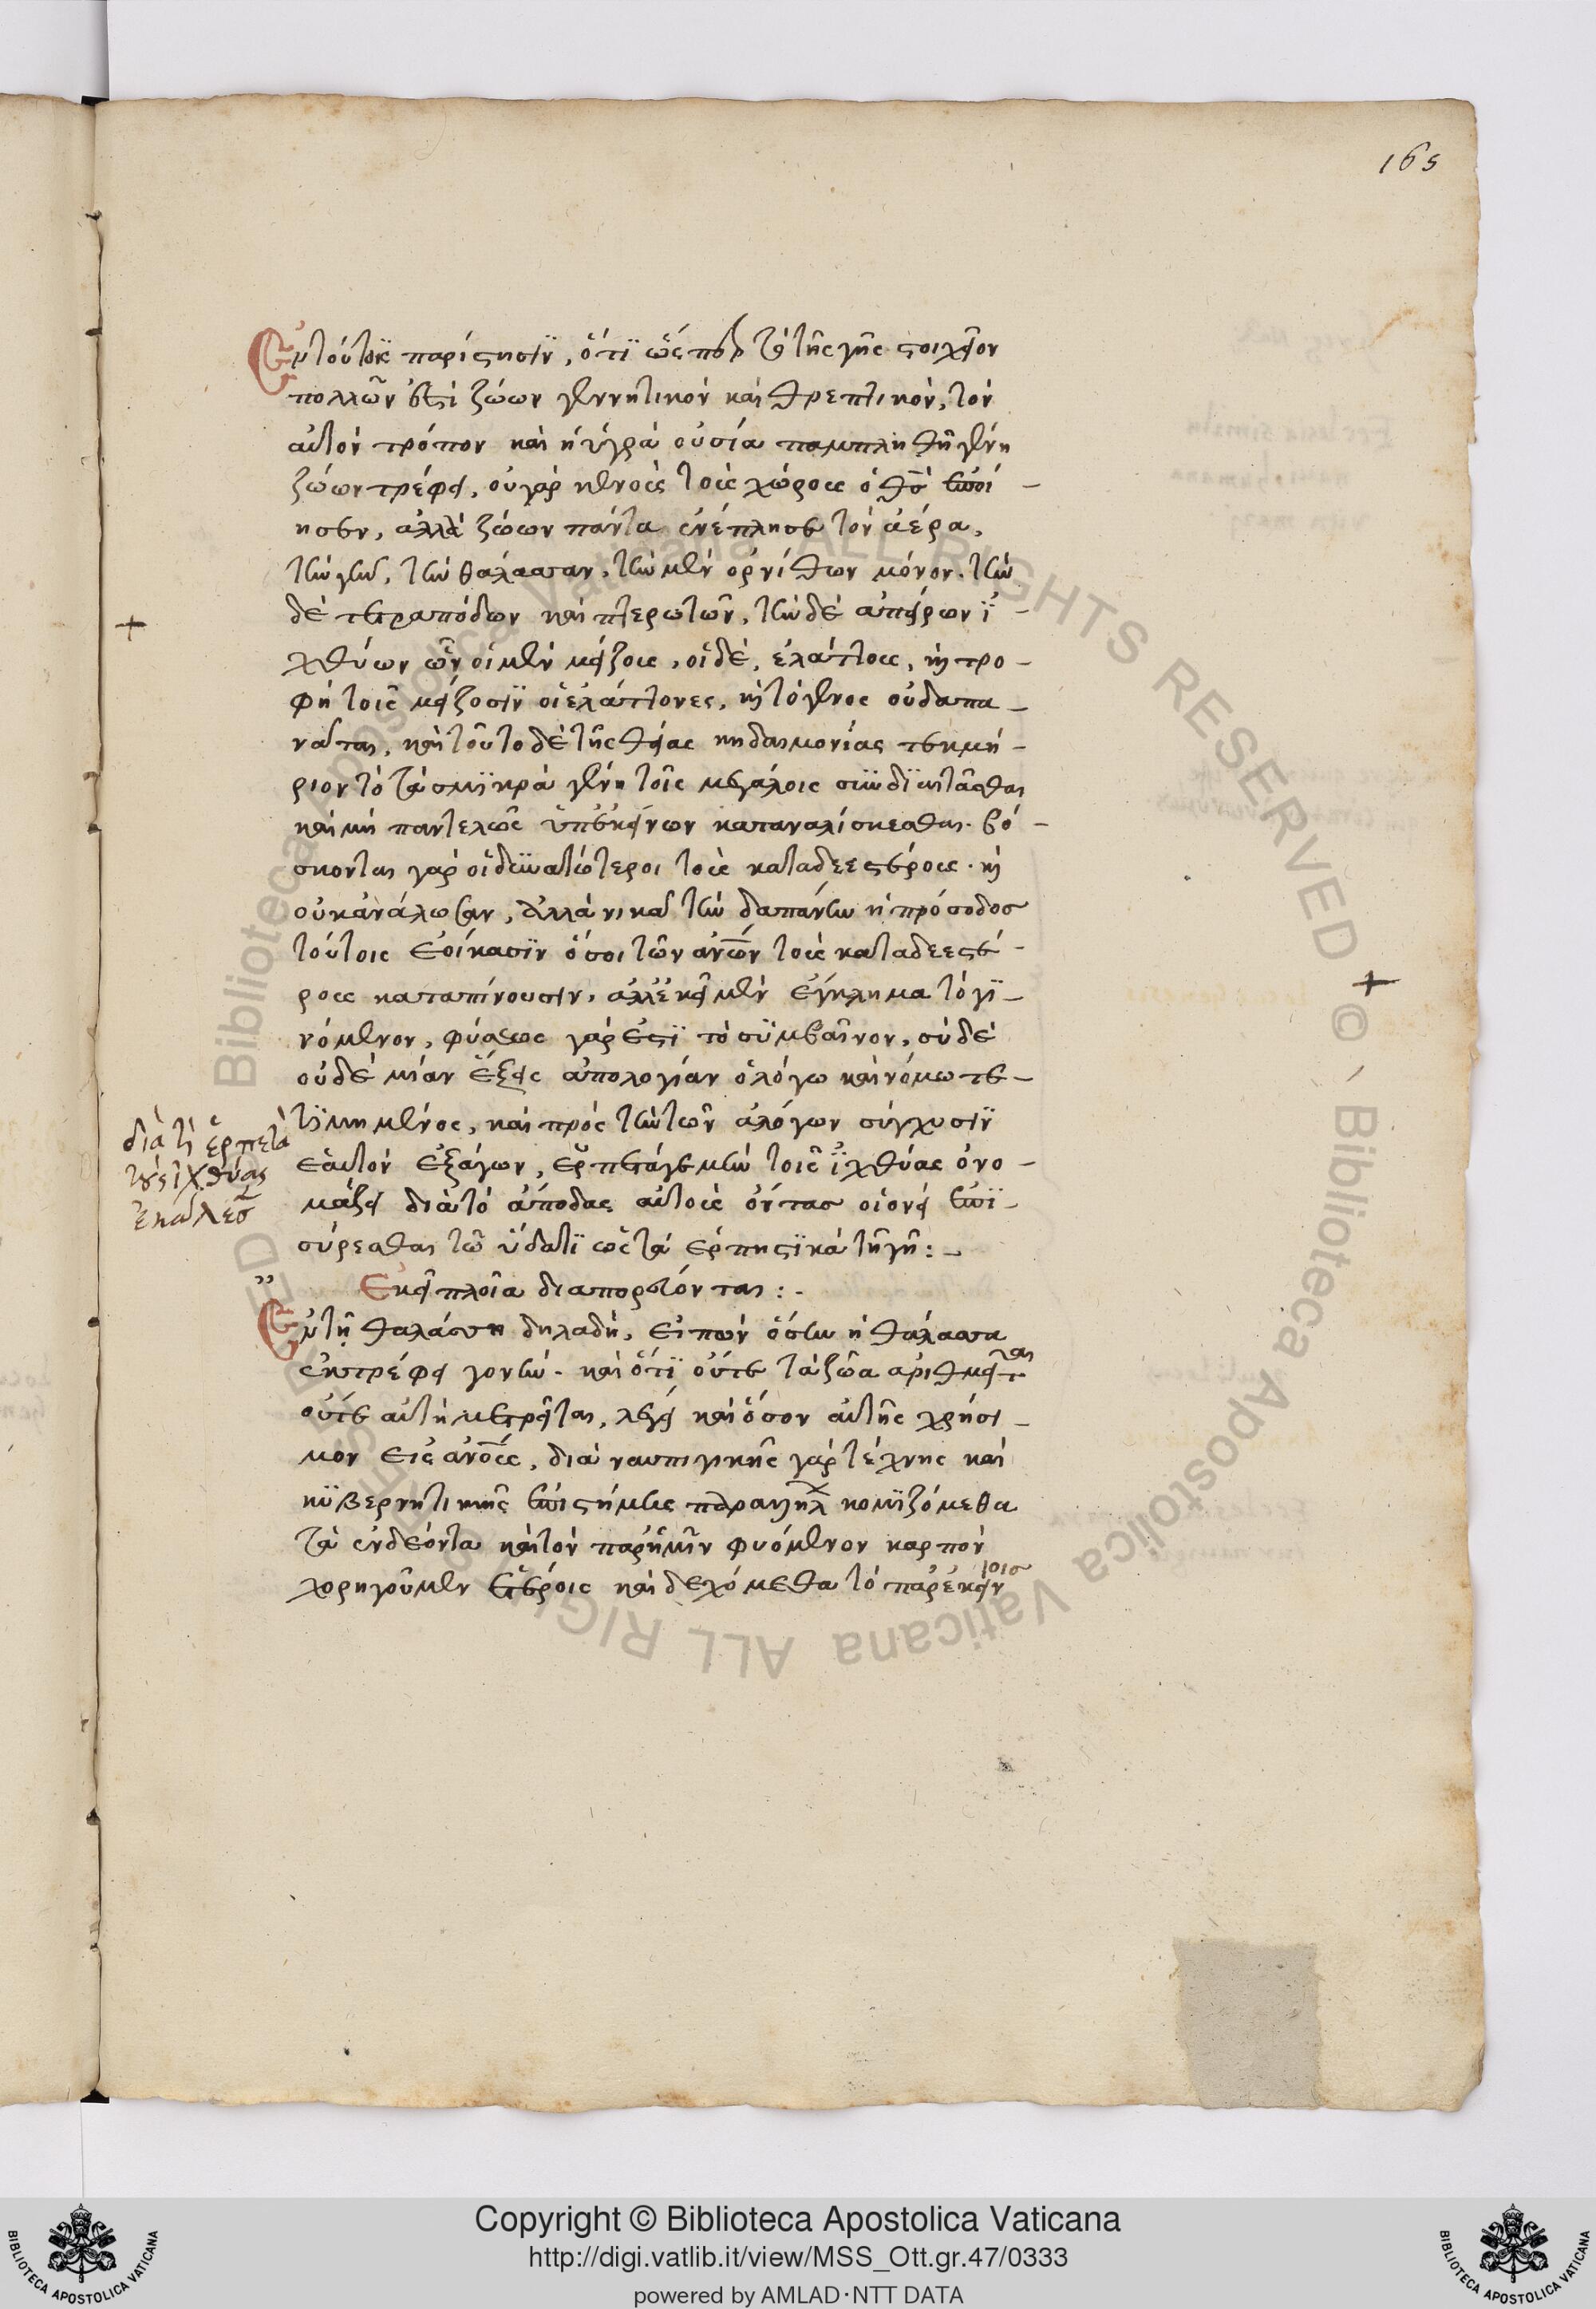 165
Ἐν τούτοις παρίστησιν, ὅτι ὥσπερ τὸ τῆς γῆς στοιχεῖον
πολλῶν ἐστὶ ζώων γεννητικὸν καὶ θρεπτικὸν, τὸν
αὐτὸν τρόπον καὶ ἡ ὑγρὰ οὐσία παμπληθῆ γένη
ζώων τρέφει, οὐ γὰρ κενοὺς τοὺς χώρους ὁ θσ ἐποί-
ησεν, ἀλλὰ ζώων πάντα ἐνέπλησε τὸν ἀέρα,
τὴν γῆν, τὴν θάλασσαν, τὴν μὲν ὀρνίθων μόνον. τὴν
δὲ τετραπόδων καὶ πτερωτῶν, τὴν δὲ ἀπείρων ἰ-
χθύων ὧν οἱ μὲν μείζους, οἱ δὲ, ἐλάττους, κỳ τρο-
φὴ τοῖς μείζοσιν οἱ ἐλάττονες, κỳ τὸ γένος οὐ δαπα-
νᾶται, καὶ τοῦτο δὲ τῆς θείας κηδαιμονίας τεκμή-
ριον τὸ τὰ σμικρὰ γένη τοῖς μεγάλοις συνδιαιτᾶσθαι
καὶ μὴ παντελῶς ὑπ' ἐκείνων καταναλίσκεσθαι. βό-
σκονται γὰρ οἱ δυνατώτεροι τοὺς καταδεεστέρους. κỳ
οὐκ ἀνάλωσαν, ἀλλὰ νικᾶ τὴν δαπάνην ἡ πρόσοδος
τούτοις ἐοίκασιν ὅσοι τῶν ἀνων τοὺς καταδεεστέ-
ρους καταπίνουσιν, ἀλλ' ἐκεῖ μὲν ἔγκλημα τὸ γι-
νόμενον, φύσεως γάρ ἐστι τὸ συμβαῖνον, σὺ δὲ
οὐδὲ μίαν ἕξεις ἀπολογίαν ὁ λόγω καὶ νόμω τε-
τιμημένος, καὶ πρὸς τὴν τῶν ἀλόγων σύγχυσιν
ἑαυτὸν ἐξάγων, ἑρπετὰ γε μὴν τοὺς ἰχθύας ὀνο-
μάζει διὰ τὸ ἄποδας αὐτοὺς ὄντας οἱονεὶ ἐπι-
σύρεσθαι τῶ ὕδατι ὡς τὰ ἑρπηστικὰ τῆ γῆ:-
διὰ τί ἑρπετὰ
τοὺς ἰχθύας
ἐκάλεσ
Ἐκεῖ πλοῖα διαπορεύονται:.
Ἐν τῆ θαλάσση δηλαδὴ, εἰπὼν ὅσην ἡ θάλασσα
ἐκτρέφει γονὴν. καὶ ὅτι οὔτε τὰ ζῶα ἀριθμεῖται
οὔτε αὐτὴ μετρεῖται, λέγει καὶ ὅσον αὐτῆς χρήσι-
μον εἰς ἀνους, διὰ ναυπηγικῆς γὰρ τέχνης καὶ
κυβερνητικῆς ἐπιστήμης παραλλήλ κομιζόμεθα
τὰ ἐνδέοντα καὶ τὸν παρ' ἡμῖν φυόμενον καρπὸν
χορηγοῦμεν ἑτέροις καὶ δεχόμεθα τὸ παρ' ἐκείνοις
Copyright © Biblioteca Apostolica Vaticana
http://digi.vatlib.it/view/MSS_Ott.gr.47/0333
powered by AMLAD·NTT DATA